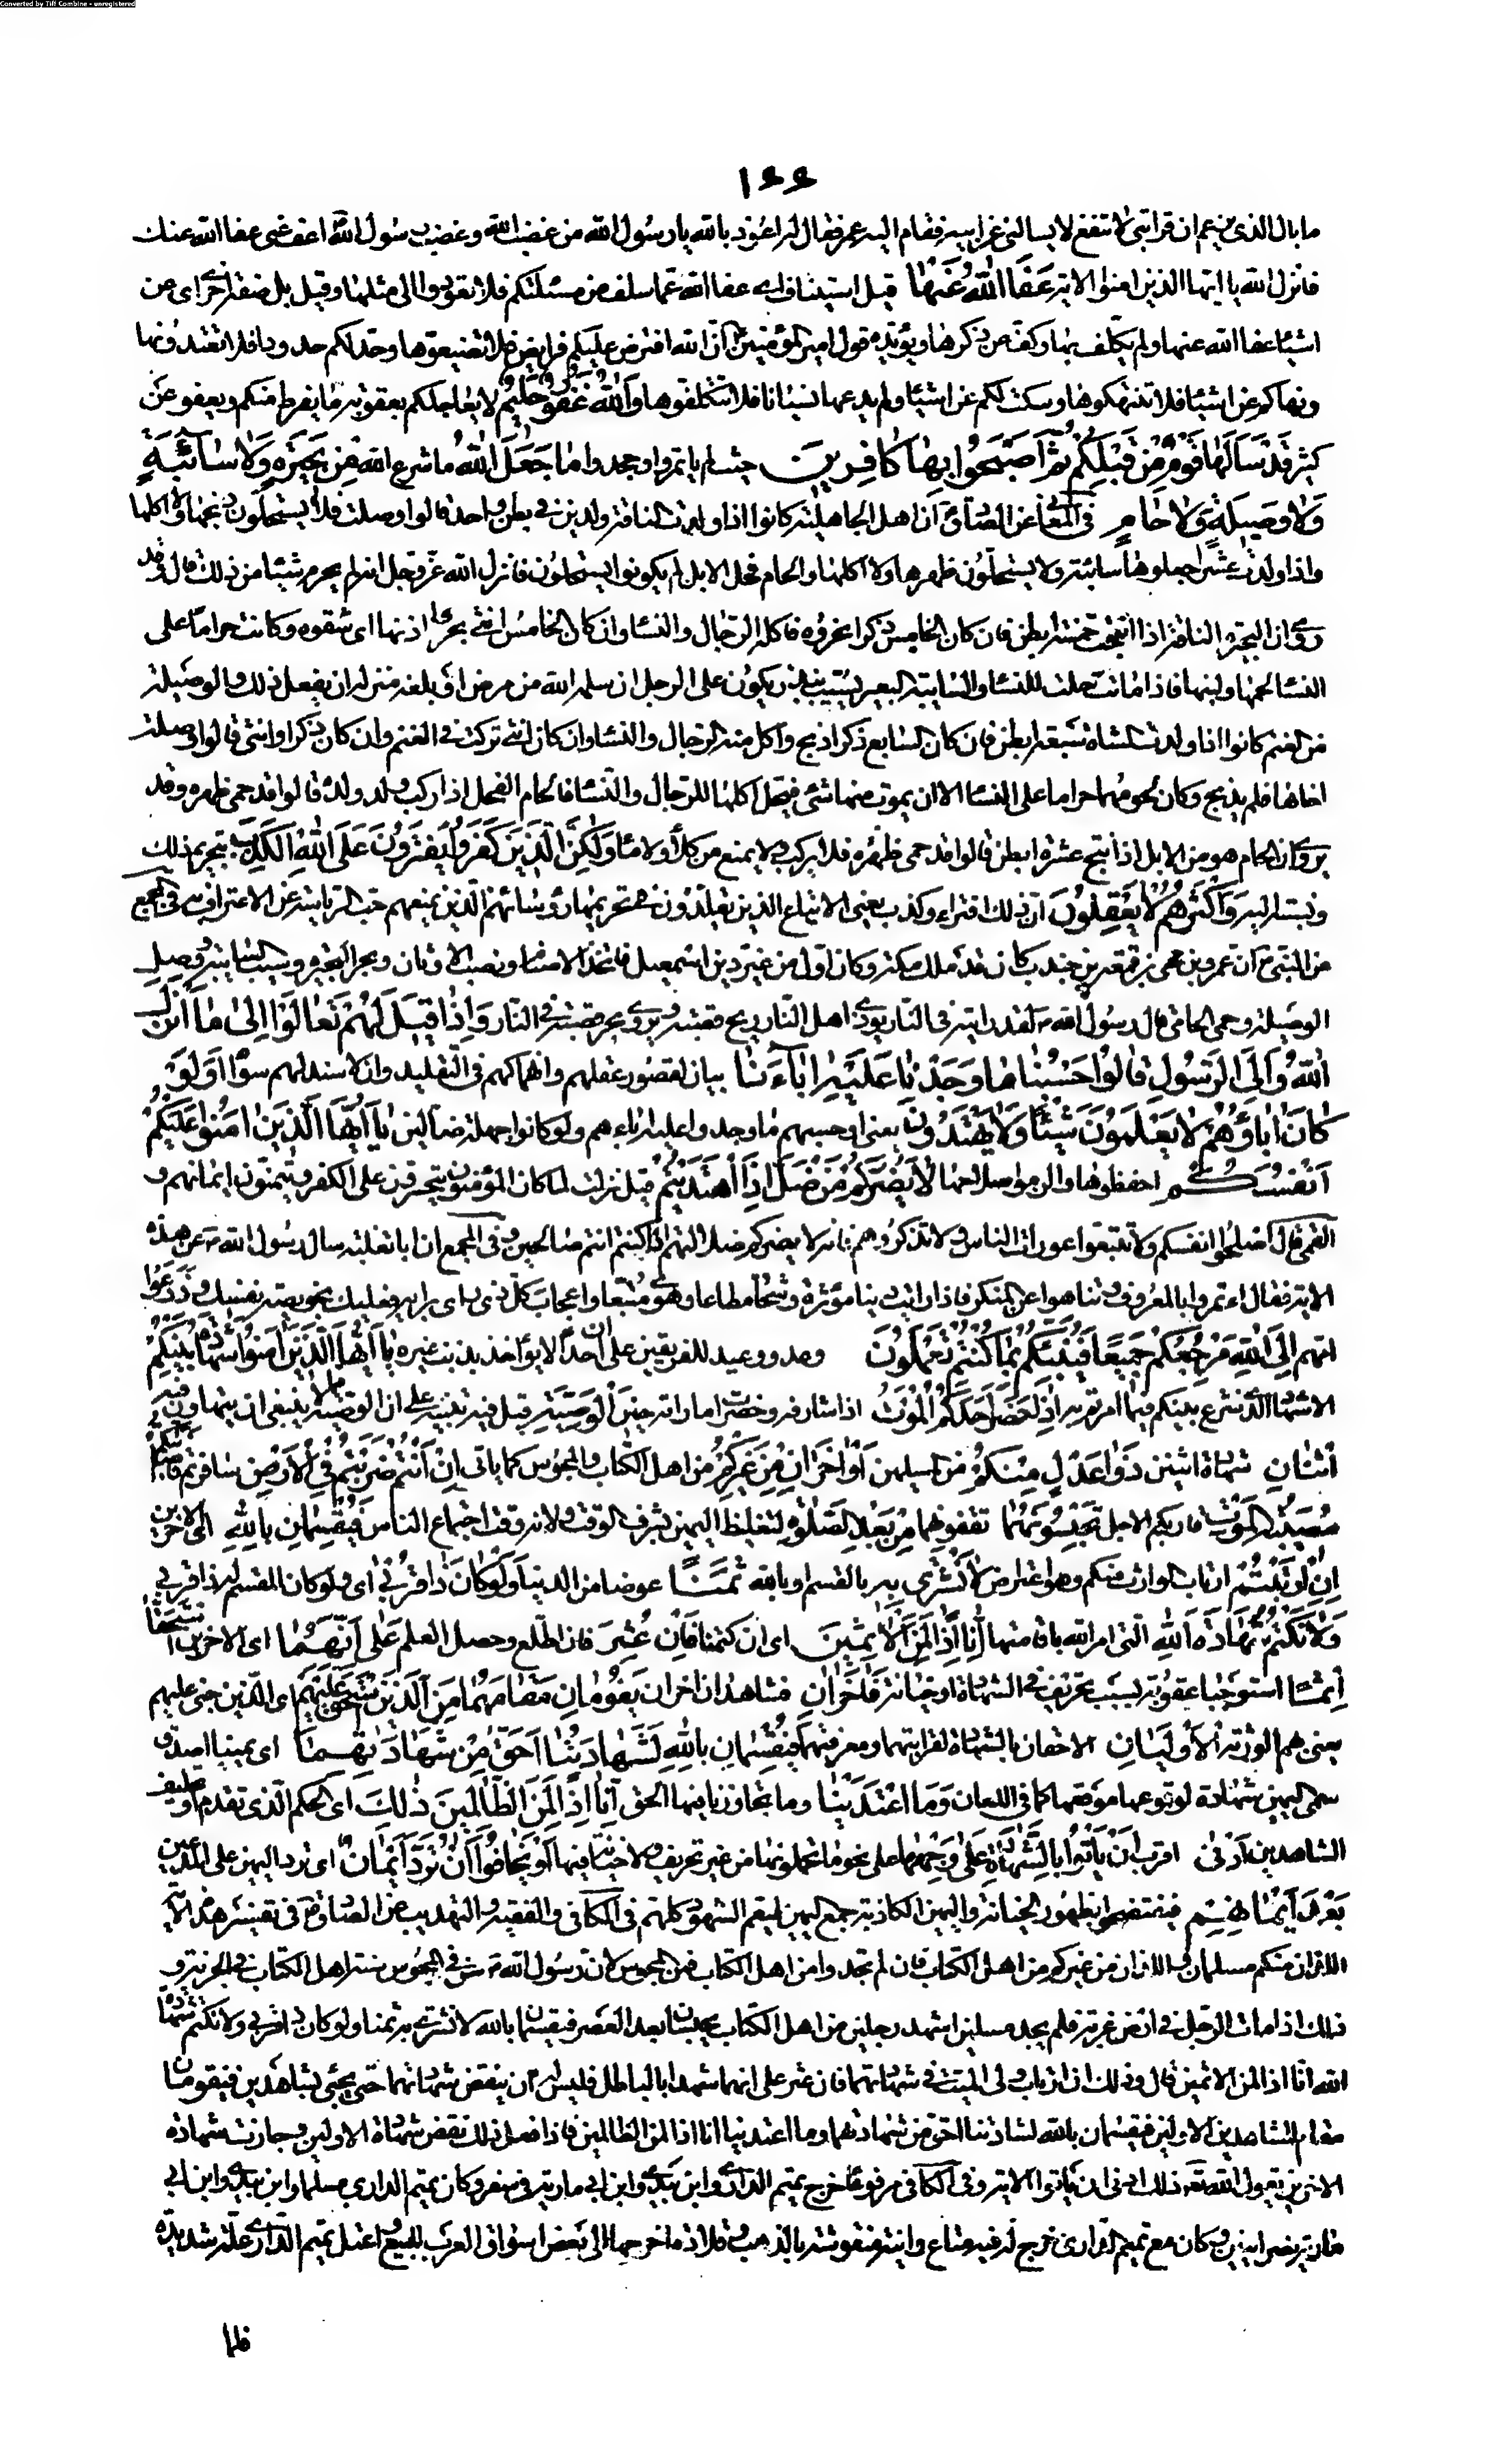 Converted by Tiff Combine - unregistered
١٤٤
ما بال الذي يزعم ان قرابتي لا تنفع لا يسالني عن ابيه فقام اليه عمر فقال له اعوذ بالله يا رسول الله من غضب الله وغضب رسول الله اعف عني عفا الله عنك
فانزل الله يا ايها الذين امنوا الاية عَفَا اللّٰهُ عَنْهَا قيل استيناف اي عفا الله عما سلف من مسئلتكم فلا تعودوا الى مثلها وقيل بل صفة اخرى اي عن
اشياء عفا الله عنها ولم يكلف بها وكف عن ذكرها ويؤيده قول امير المؤمنين ان الله افترض عليكم فرايض فلا تضيعوها وحد لكم حدودا فلا تعتدوها
ونهاكم عن اشياء فلا تنتهكوها وسكت لكم عن اشياء ولم يدعها نسيانا فلا تتكلفوها وَاللّٰهُ غَفُورٌ حَلِيمٌ لا يعاجلكم بعقوبة ما يفرط منكم ويعفو عن
كثير قَدْ سَاَلَهَا قَوْمٌ مِنْ قَبْلِكُمْ ثُمَّ اَصْبَحُوا بِهَا كَافِرِينَ حيث لم ياتمروا وجحدوا مَا جَعَلَ اللّٰهُ ما شرع الله مِنْ بَحِيرَةٍ وَلَا سَائِبَةٍ
وَلَا وَصِيلَةٍ وَلَا حَامٍ في المعاني عن الصادق ان اهل الجاهلية كانوا اذا ولدت الناقة ولدين في بطن واحد قالوا وصلت فلا يستحلون ذبحها ولا اكلها
واذا ولدت عشرا جعلوها سائبة ولا يستحلون ظهرها ولا اكلها والحام فحل الابل لم يكونوا يستحلون فانزل الله عز وجل انه لم يحرم شيئا من ذلك قال وقد
روي ان البحيرة الناقة اذا انتجت خمسة ابطن فان كان الخامس ذكرا نحروه فاكله الرجال والنساء وان كان الخامس انثى بحروا اذنها اي شقوه وكانت حراما على
النساء لحمها ولبنها فاذا ماتت حلت للنساء والسائبة البعير يسيب بنذر يكون على الرجل ان سلمه الله من مرض او بلغه منزله ان يفعل ذلك والوصيلة
من الغنم كانوا اذا ولدت الشاة سبعة ابطن فان كان السابع ذكرا ذبح واكل منه الرجال والنساء وان كان انثى تركت في الغنم وان كان ذكرا وانثى قالوا وصلت
اخاها فلم يذبح وكان لحومهما حراما على النساء الا ان يموت منهما شئ فيحل اكلها للرجال والنساء والحام الفحل اذا ركب ولد ولده قالوا قد حمى ظهره وقد
يروى ان الحام هو من الابل اذا نتج عشرة ابطن قالوا قد حمى ظهره فلا يركب ولا يمنع من كلأ ولا ماء وَلٰكِنَّ الَّذِينَ كَفَرُوا يَفْتَرُونَ عَلَى اللّٰهِ الْكَذِبَ بتحريم ذلك
ونسبته اليه وَاَكْثَرُهُمْ لَا يَعْقِلُونَ ان ذلك افتراء وكذب يعني الاتباع الذين يقلدون في تحريمها رؤسائهم الذين يمنعهم حب الرياسة عن الاعتراف به في المجمع
عن النبي ص ان عمرو بن لحى بن قمعة بن خندب كان قد ملك مكة وكان اول من غير دين اسمعيل فاتخذ الاصنام ونصب الاوثان وبحر البحيرة وسيب السايبة ووصل
الوصيلة وحمى الحامي قال رسول الله ص فلقد رايته في النار يؤذي اهل النار ريح قصبه ويروى يجر قصبه في النار وَاِذَا قِيلَ لَهُمْ تَعَالَوْا اِلَى مَا اَنْزَلَ
اللّٰهُ وَاِلَى الرَّسُولِ قَالُوا حَسْبُنَا مَا وَجَدْنَا عَلَيْهِ اٰبَاءَنَا بيان لقصور عقلهم وانهماكهم في التقليد وان لا سند لهم سواه اَوَلَوْ
كَانَ اٰبَاؤُهُمْ لَا يَعْلَمُونَ شَيْئًا وَلَا يَهْتَدُونَ يعني اوحسبهم ما وجدوا عليه اباءهم ولو كانوا جهلة ضالين يَا اَيُّهَا الَّذِينَ اٰمَنُوا عَلَيْكُمْ
اَنْفُسَكُمْ احفظوها والزموا صلاحها لَا يَضُرُّكُمْ مَنْ ضَلَّ اِذَا اهْتَدَيْتُمْ قيل نزلت لما كان المؤمنون يتحسرون على الكفرة ويتمنون ايمانهم و
القمي قال اصلحوا انفسكم ولا تتبعوا عورات الناس ولا تذكروهم فانه لا يضركم ضلالتهم اذا كنتم انتم صالحين وفي المجمع ان ابا ثعلبة سال رسول الله ص عن هذه
الاية فقال ائتمروا بالمعروف وتناهوا عن المنكر فاذا رايت دنيا مؤثرة وشحا مطاعا وهوى متبعا واعجاب كل ذي راي برايه فعليك بخويصة نفسك وذر عوا
امهم اِلَى اللّٰهِ مَرْجِعُكُمْ جَمِيعًا فَيُنَبِّئُكُمْ بِمَا كُنْتُمْ تَعْمَلُونَ وعد ووعيد للفريقين على ان احدا لا يؤاخذ بذنب غيره يَا اَيُّهَا الَّذِينَ اٰمَنُوا شَهَادَةُ بَيْنِكُمْ
الاشهاد الذي شرع بينكم فيما امرتم به اِذَا حَضَرَ اَحَدَكُمُ الْمَوْتُ اذا شارفه وحضرت اماراته حِينَ الْوَصِيَّةِ قيل فيه تنبيه على ان الوصية مما لا ينبغي ان يتهاون فيه
اثْنَانِ شهادة اثنين ذَوَا عَدْلٍ مِنْكُمْ من المسلمين اَوْ اٰخَرَانِ مِنْ غَيْرِكُمْ من اهل الكتاب والمجوس كما ياتي اِنْ اَنْتُمْ ضَرَبْتُمْ فِي الْاَرْضِ سافرتم فَاَصَابَتْكُمْ
مُصِيبَةُ الْمَوْتِ قاربكم الاجل تَحْبِسُونَهُمَا تقفونهما مِنْ بَعْدِ الصَّلٰوةِ لتغليظ اليمين بشرف الوقت ولانه وقت اجتماع الناس فَيُقْسِمَانِ بِاللّٰهِ اي الاخرين
اِنِ ارْتَبْتُمْ ارتاب الوارث منكم وهو اعتراض لَا نَشْتَرِي بِهِ بالقسم او بالله ثَمَنًا عوضا من الدنيا وَلَوْ كَانَ ذَا قُرْبَى اي ولو كان المقسم له ذا قربى
وَلَا نَكْتُمُ شَهَادَةَ اللّٰهِ التي امر الله باقامتها اِنَّا اِذًا لَمِنَ الْاٰثِمِينَ اي ان كتمنا فَاِنْ عُثِرَ فان اطلع وحصل العلم عَلَى اَنَّهُمَا اي الاخرين اسْتَحَقَّا
اِثْمًا استوجبا عقوبة بسبب تحريف في الشهادة او خيانة فَاٰخَرَانِ فشاهدان اخران يَقُومَانِ مَقَامَهُمَا مِنَ الَّذِينَ اسْتَحَقَّ عَلَيْهِمُ اي الذين جنى عليهم
يعني هم الورثة الْاَوْلَيَانِ الاحقان بالشهادة لقرابتهما ومعرفتهما فَيُقْسِمَانِ بِاللّٰهِ لَشَهَادَتُنَا اَحَقُّ مِنْ شَهَادَتِهِمَا اي يميننا اصدق
سمى اليمين شهادة لوقوعها موقعها كما في اللعان وَمَا اعْتَدَيْنَا وما تجاوزنا فيها الحق اِنَّا اِذًا لَمِنَ الظَّالِمِينَ ذٰلِكَ اي الحكم الذي تقدم او تحليف
الشاهدين اَدْنٰى اقرب اَنْ يَاْتُوا بِالشَّهَادَةِ عَلَى وَجْهِهَا على نحو ما تحملوها من غير تحريف ولا خيانة فيها اَوْ يَخَافُوا اَنْ تُرَدَّ اَيْمَانٌ اي ترد اليمين على المدعين
بَعْدَ اَيْمَانِهِمْ فيفتضحوا بظهور الخيانة واليمين الكاذبة جمع اليمين ليعم الشهود كلهم في الكافي والفقيه والتهذيب عن الصادق ع في تفسير هذه الاية
اللذان منكم مسلمان واللذان من غيركم من اهل الكتاب فان لم تجدوا من اهل الكتاب فمن المجوس لان رسول الله ص سن في المجوس سنة اهل الكتاب في الجزية و
ذلك اذا مات الرجل في ارض غربة فلم يجد مسلمين اشهد رجلين من اهل الكتاب يحبسان بعد العصر فيقسمان بالله لا نشتري به ثمنا ولو كان ذا قربى ولا نكتم شهادة
الله انا اذا لمن الاثمين قال وذلك ان ارتاب ولي الميت في شهادتهما فان عثر على انهما شهدا بالباطل فليس له ان ينقض شهادتهما حتى يجئ بشاهدين فيقومان
مقام الشاهدين الاولين فيقسمان بالله لشهادتنا احق من شهادتهما وما اعتدينا انا اذا لمن الظالمين فاذا فعل ذلك نقض شهادة الاولين وجازت شهادة
الاخرين يقول الله تع ذلك ادنى ان ياتوا الاية وفي الكافي مرفوعا خرج تميم الداري وابن بيدي وابن ابي مارية في سفر وكان تميم الداري مسلما وابن بيدي وابن ابي
مارية نصرانيين وكان مع تميم الداري خرج له فيه متاع وانية منقوشة بالذهب وقلادة اخرجها الى بعض اسواق العرب للبيع واعتل تميم الداري علة شديدة
فلما